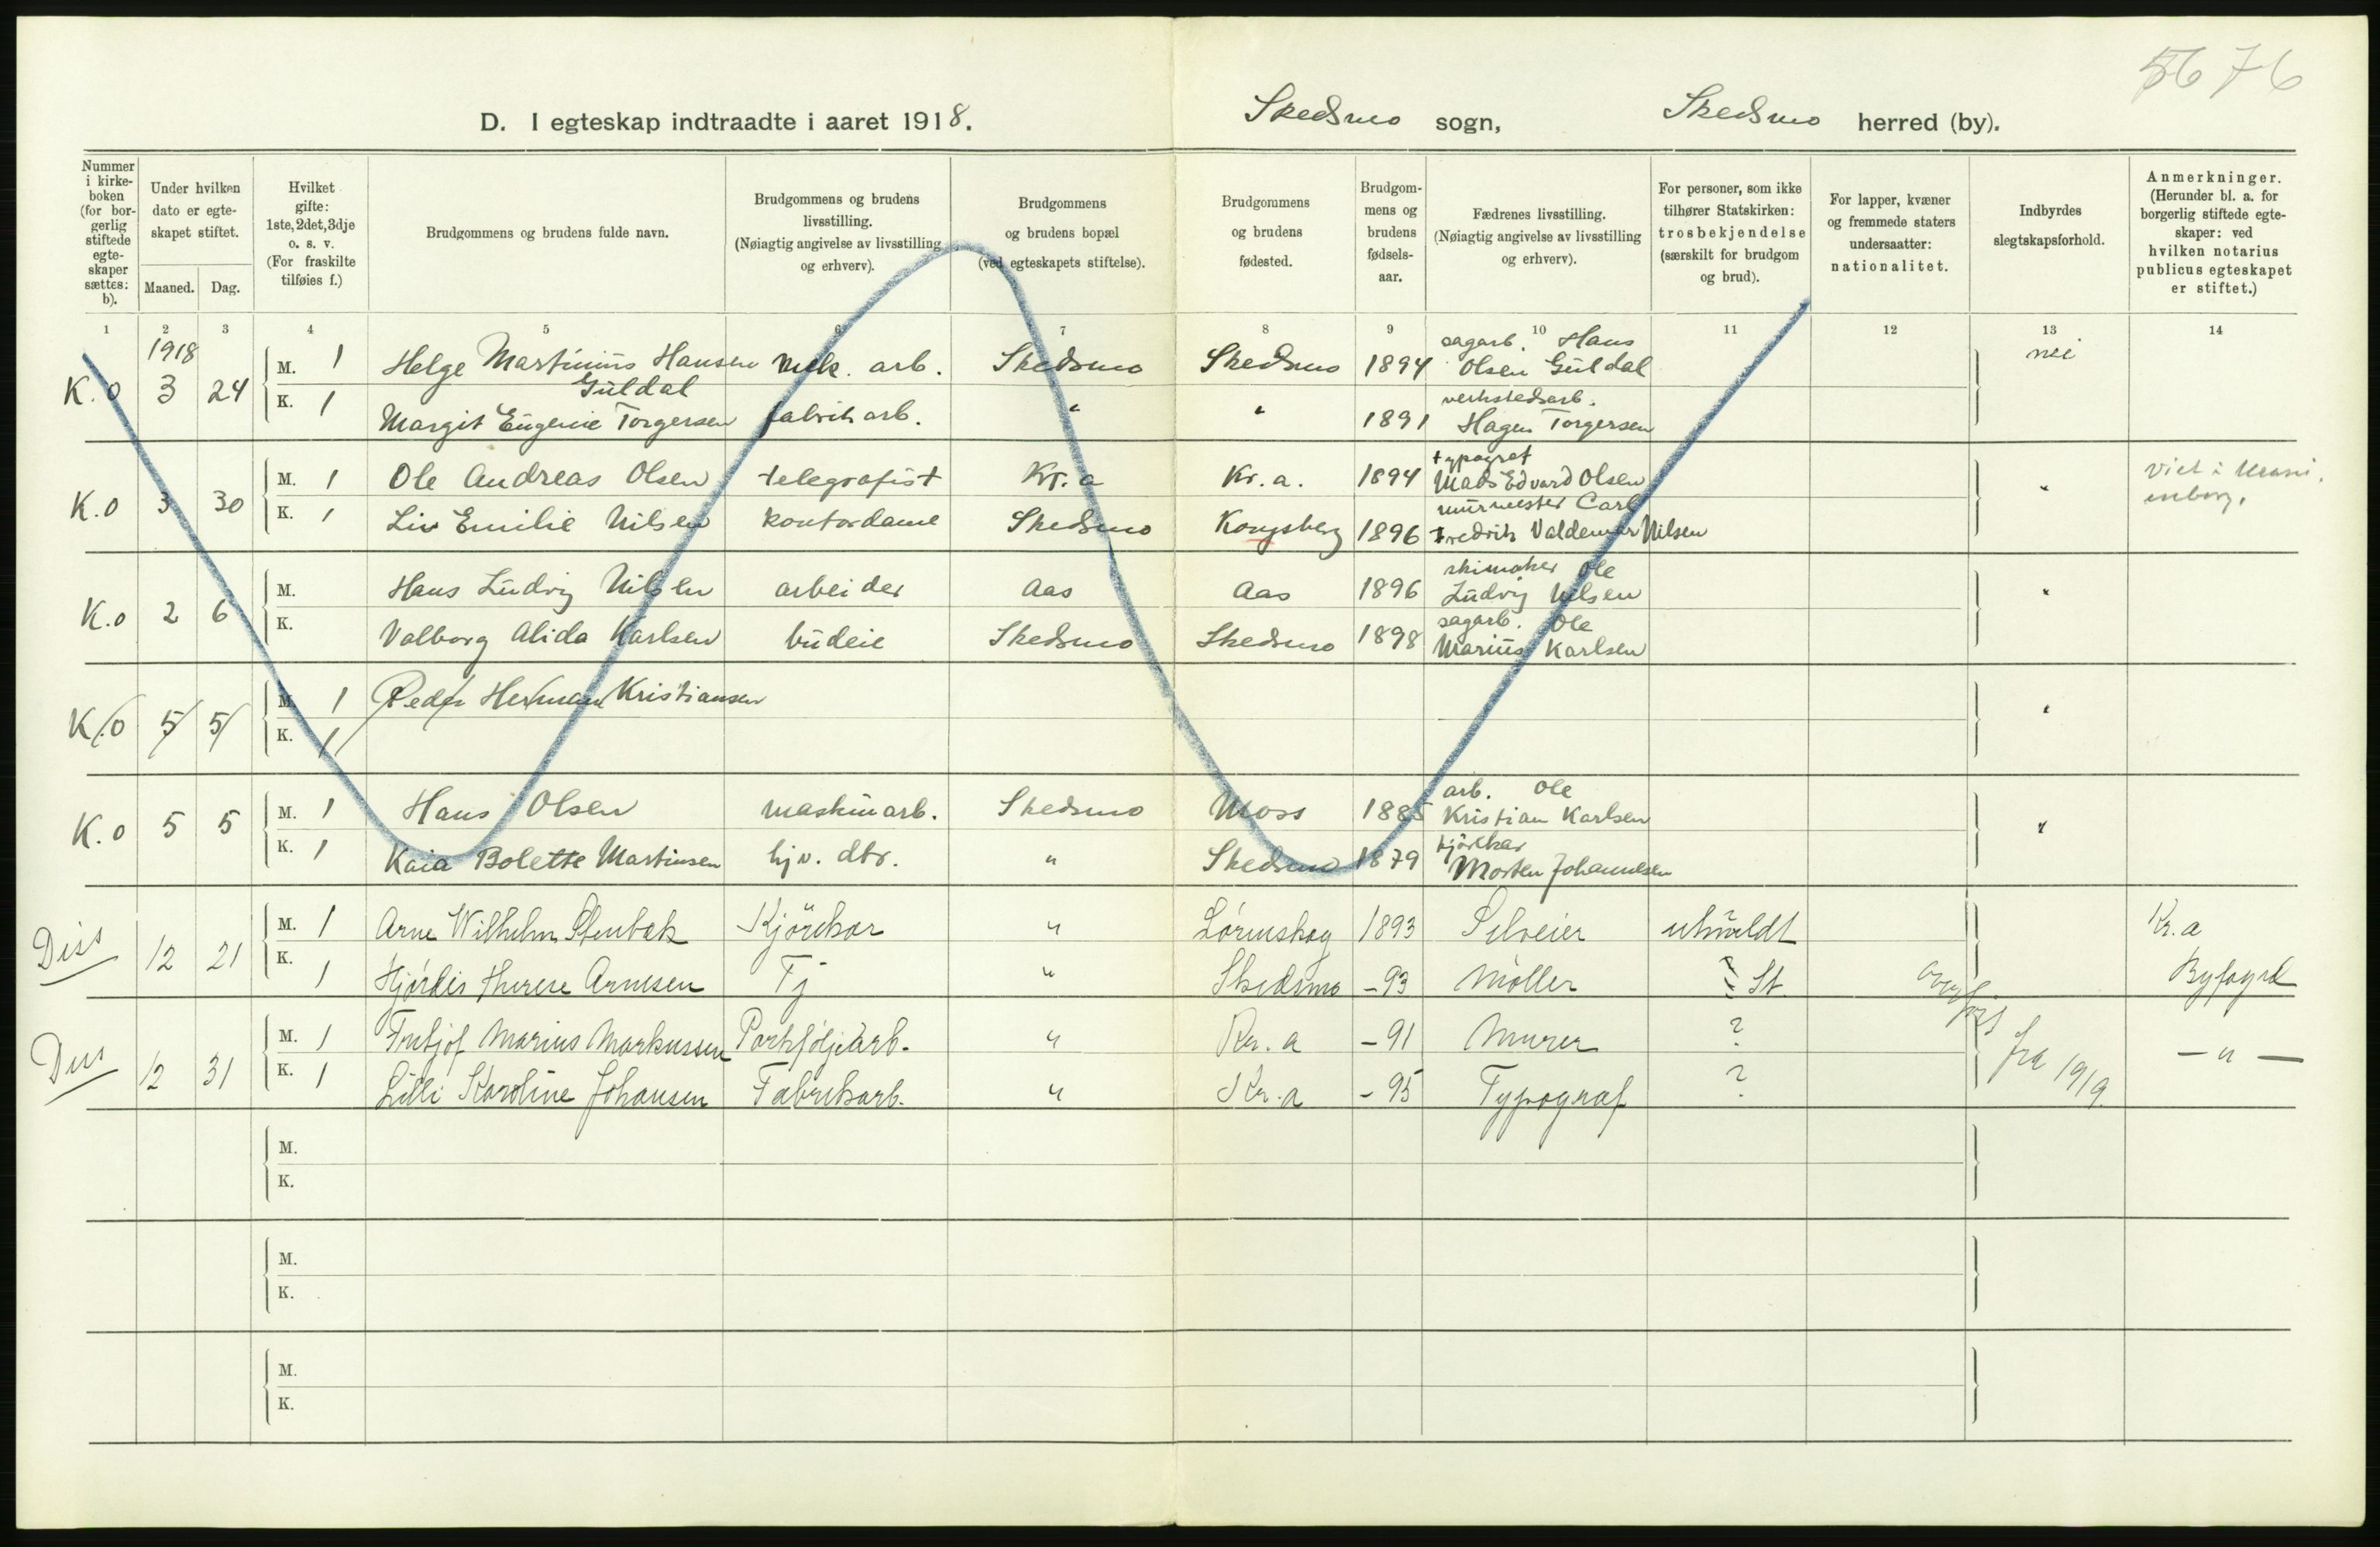 5676
D. I egteskap indtraadte i aaret 1918. Skedsmo sogn, Skedsmo herred (by).
Nummer i kirkeboken (for borgerlig stiftede egteskaper sættes: b).
Under hvilken dato er egteskapet stiftet.
Maaned. Dag.
Hvilket gifte: 1ste, 2det, 3dje o. s. v. (For fraskilte tilføies f.)
Brudgommens og brudens fulde navn.
Brudgommens og brudens livsstilling. (Nøiagtig angivelse av livsstilling og erhverv).
Brudgommens og brudens bopæl (ved egteskapets stiftelse).
Brudgommens og brudens fødested.
Brudgommens og brudens fødselsaar.
Fædrenes livsstilling. (Nøiagtig angivelse av livsstilling og erhverv).
For personer, som ikke tilhører Statskirken: trosbekjendelse (særskilt for brudgom og brud).
For lapper, kvæner og fremmede staters undersaatter: nationalitet.
Indbyrdes slegtskapsforhold.
Anmerkninger. (Herunder bl. a. for borgerlig stiftede egteskaper: ved hvilken notarius publicus egteskapet er stiftet.)
1 2 3 4 5 6 7 8 9 10 11 12 13 14
1918
K.O 3 24 M. 1 Helge Martinius Hansen Guldal mek. arb. Skedsmo Skedsmo 1894 sagarb. Hans Olsen Guldal nei
K. 1 Margit Eugenie Torgersen fabrik arb. " " 1891 verkstedsarb. Hagen Torgersen
K.O 3 30 M. 1 Ole Andreas Olsen telegrafist Kr.a Kr.a. 1894 typograf Mads Edvard Olsen " Viet i
K. 1 Liv Emilie Nilsen kontordame Skedsmo Kongsberg 1896 murmester Carl Fredrik Valdemar Nilsen
K.O 2 6 M. Hans Ludvig Nilsen arbeider Aas Aas 1896 skimaker Ole Ludvig Nilsen "
K. Valborg Alida Karlsen budeie Skedsmo Skedsmo 1898 sagarb. Ole Marius Karlsen
K.O 5 5 M. 1 Peder Herman Kristiansen "
K. 1
K.O 5 5 M. 1 Hans Olsen maskinarb. Skedsmo Moss 1885 arb. Ole Kristian Karlsen "
K. 1 Kaia Bolette Martinsen hjv. dtr. " Skedsmo 1879 kjörekar Morten Johannesen
Diss 12 21 M. 1 Arne Wilhelm Stenbæk Kjörekar " Lörenskog 1893 Selveier utmeldt Kr.a
K. 1 Hjördis Therese Arnesen Tj " Skedsmo -93 Möller ? St. Byfogd
Diss 12 31 M. 1 Fritjof Marius Markussen Portföljearb. " Kr. a -91 Murer ? overført fra 1919 — " —
K. 1 Lilli Karoline Johansen Fabrikarb. " Kr. a -95 Typograf ?
M.
K.
M.
K.
M.
K.